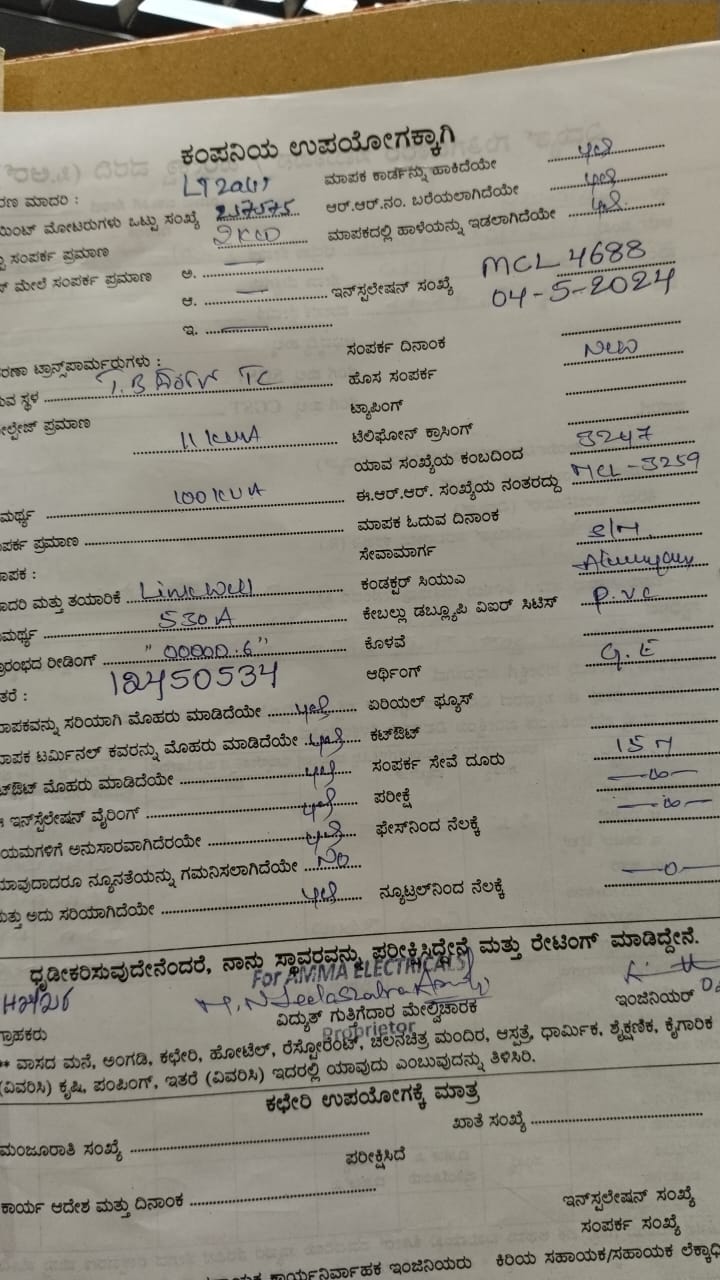 ಕಂಪನಿಯ ಉಪಯೋಗಕ್ಕಾಗಿ
ರಣ ಮಾದರಿ : ಮಾಪಕ ಕಾರ್ಡನ್ನು ಹಾಕಿದೆಯೇ yes
ಯಿಂಟ್ ಮೋಟರುಗಳು ಒಟ್ಟು ಸಂಖ್ಯೆ ಆರ್.ಆರ್.ನಂ. ಬರೆಯಲಾಗಿದೆಯೇ yes
ಸಂಪರ್ಕ ಪ್ರಮಾಣ ಮಾಪಕದಲ್ಲಿ ಹಾಳೆಯನ್ನು ಇಡಲಾಗಿದೆಯೇ yes
ಮೇಲೆ ಸಂಪರ್ಕ ಪ್ರಮಾಣ ಅ.
ಆ. ಇನ್‌ಸ್ಪಲೇಷನ್ ಸಂಖ್ಯೆ MCL 4688
04-5-2024
ಇ.
ಸಂಪರ್ಕ ದಿನಾಂಕ
ರಣಾ ಟ್ರಾನ್ಸ್‌ಪಾರ್ಮರುಗಳು :
ುವ ಸ್ಥಳ T.B TC ಹೊಸ ಸಂಪರ್ಕ New
ಟ್ಯಾಪಿಂಗ್
ಲ್ಟೇಜ್ ಪ್ರಮಾಣ 11 ಟೆಲಿಫೋನ್ ಕ್ರಾಸಿಂಗ್
ಯಾವ ಸಂಖ್ಯೆಯ ಕಂಬದಿಂದ 3247
ಮರ್ಥ್ಯ 100 KVA ಈ.ಆರ್.ಆರ್. ಸಂಖ್ಯೆಯ ನಂತರದ್ದು MCL-3259
ಪರ್ಕ ಪ್ರಮಾಣ ಮಾಪಕ ಓದುವ ದಿನಾಂಕ
ಾಪಕ : ಸೇವಾಮಾರ್ಗ
ಾದರಿ ಮತ್ತು ತಯಾರಿಕೆ Linkwell ಕಂಡಕ್ಟರ್ ಸಿಯುಎ
ಮರ್ಥ್ಯ 530A ಕೇಬಲ್ಲು ಡಬ್ಲ್ಯೂಪಿ ವಿಐರ್ ಸಿಟಿಸ್ P.VC
ಾರಂಭದ ರೀಡಿಂಗ್ "00000.6" ಕೊಳವೆ
ತರೆ : 12450534 ಆರ್ಥಿಂಗ್ G.E
ಾಪಕವನ್ನು ಸರಿಯಾಗಿ ಮೊಹರು ಮಾಡಿದೆಯೇ yes ಏರಿಯಲ್ ಫ್ಯೂಸ್
ಾಪಕ ಟರ್ಮಿನಲ್ ಕವರನ್ನು ಮೊಹರು ಮಾಡಿದೆಯೇ yes ಕಟ್‌ಔಟ್
ಟ್‌ಔಟ್ ಮೊಹರು ಮಾಡಿದೆಯೇ yes ಸಂಪರ್ಕ ಸೇವೆ ದೂರು 15 M
ಇನ್‌ಸ್ಪೆಲೇಷನ್ ವೈರಿಂಗ್ yes ಪರೀಕ್ಷೆ
ಯಮಗಳಿಗೆ ಅನುಸಾರವಾಗಿದೆರಯೇ yes ಫೇಸ್‌ನಿಂದ ನೆಲಕ್ಕೆ
ಾವುದಾದರೂ ನ್ಯೂನತೆಯನ್ನು ಗಮನಿಸಲಾಗಿದೆಯೇ No
ುತ್ತು ಅದು ಸರಿಯಾಗಿದೆಯೇ yes ನ್ಯೂಟ್ರಲ್‌ನಿಂದ ನೆಲಕ್ಕೆ
ಧೃಡೀಕರಿಸುವುದೇನೆಂದರೆ, ನಾನು ಸ್ಥಾವರವನ್ನು ಪರೀಕ್ಷಿಸಿದ್ದೇನೆ ಮತ್ತು ರೇಟಿಂಗ್ ಮಾಡಿದ್ದೇನೆ.
For AMMA ELECTRICALS
ಗ್ರಾಹಕರು ವಿದ್ಯುತ್ ಗುತಿಗೆದಾರ ಮೇಲ್ವಿಚಾರಕ ಇಂಜಿನಿಯರ್
Proprietor
** ವಾಸದ ಮನೆ, ಅಂಗಡಿ, ಕಛೇರಿ, ಹೋಟೆಲ್, ರೆಸ್ಟೋರೆಂಟ್, ಚಲನಚಿತ್ರ ಮಂದಿರ, ಆಸ್ಪತ್ರೆ, ಧಾರ್ಮಿಕ, ಶೈಕ್ಷಣಿಕ, ಕೈಗಾರಿಕ
(ವಿವರಿಸಿ) ಕೃಷಿ, ಪಂಪಿಂಗ್, ಇತರೆ (ವಿವರಿಸಿ) ಇದರಲ್ಲಿ ಯಾವುದು ಎಂಬುವುದನ್ನು ತಿಳಿಸಿರಿ.
ಕಛೇರಿ ಉಪಯೋಗಕ್ಕೆ ಮಾತ್ರ
ಮಂಜೂರಾತಿ ಸಂಖ್ಯೆ ಖಾತೆ ಸಂಖ್ಯೆ
ಪರೀಕ್ಷಿಸಿದೆ
ಕಾರ್ಯ ಆದೇಶ ಮತ್ತು ದಿನಾಂಕ ಇನ್‌ಸ್ಪಲೇಷನ್ ಸಂಖ್ಯೆ
ಸಂಪರ್ಕ ಸಂಖ್ಯೆ
ಕಾರ್ಯನಿರ್ವಾಹಕ ಇಂಜಿನಿಯರು ಕಿರಿಯ ಸಹಾಯಕ/ಸಹಾಯಕ ಲೆಕ್ಕಾಧಿ